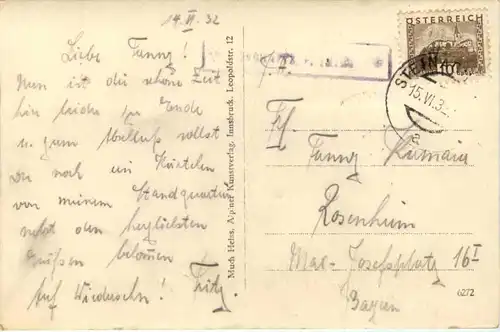 14. VI. 32
Liebe Fanny!
Nun ist die schöne Zeit
hin leider zu Ende
u. zum Abschluß sollst
Du noch ein Kärtchen
von meinem Standquartier
nebst den herzlichsten
Grüßen bekommen
Auf Wiedersehn! Fritz
Much Heiss, Alpiner Kunstverlag, Innsbruck, Leopoldstr. 12
ÖSTERREICH
STEIN
15.VI.32
Frl.
Fanny
Rosenheim
Max-Josefsplatz 16 I
Bayern
6272